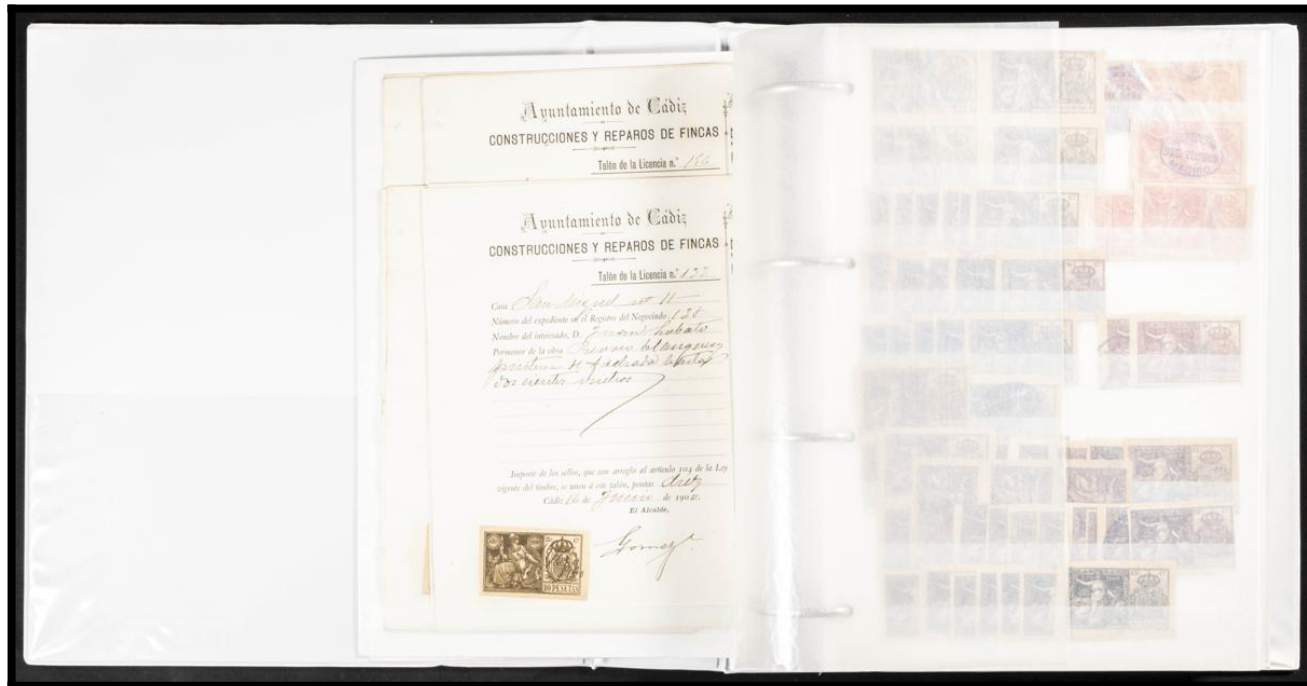 Ayuntamiento de Cádiz
CONSTRUCCIONES Y REPAROS DE FINCAS
Talón de la Licencia n.º 166
Ayuntamiento de Cádiz
CONSTRUCCIONES Y REPAROS DE FINCAS
Talón de la Licencia n.º 122
Casa San Miguel nº 11
Número del expediente en el Registro del Negociado 120
Nombre del interesado, D. Juan Lobato
Pormenor de la obra blanqueo y
pintura de fachada hasta
doscientos metros
Importe de los sellos, que con arreglo al artículo 194 de la Ley
vigente del timbre, se unen á este talón, pesetas diez
Cádiz 16 de Junio de 190
El Alcalde,
Gomez
10 PESETAS
MADRID